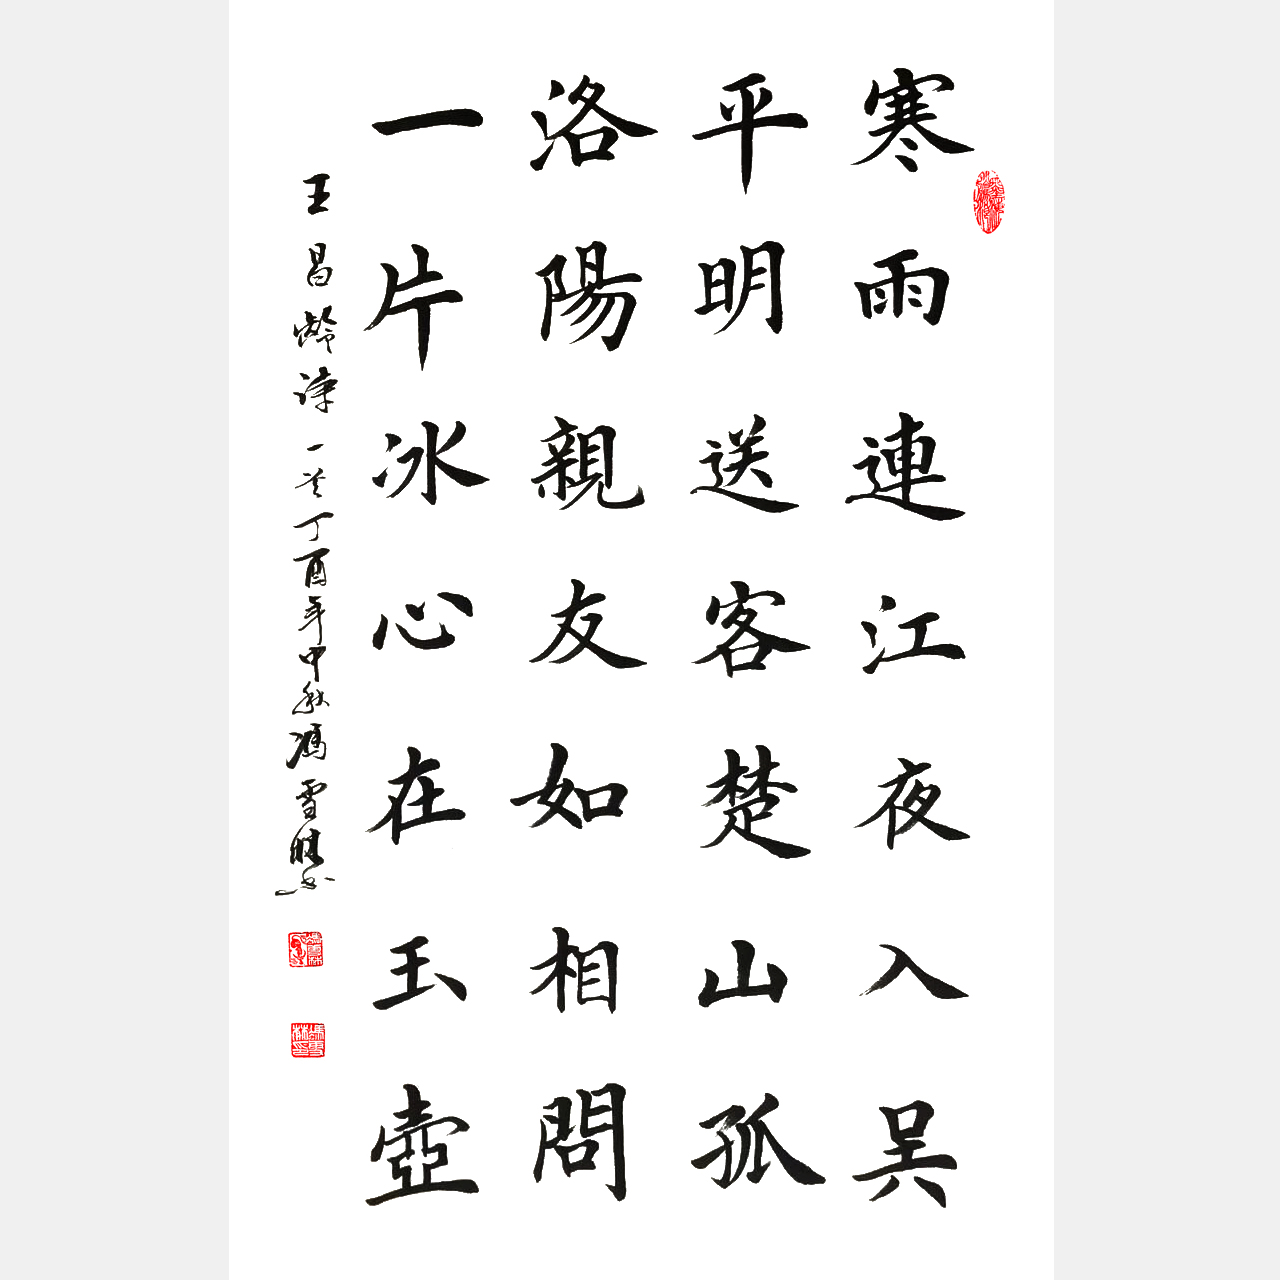 寒雨連江夜入吴
平明送客楚山孤
洛陽親友如相問
一片冰心在玉壺
王昌齡诗一首丁酉年中秋馮雪林书